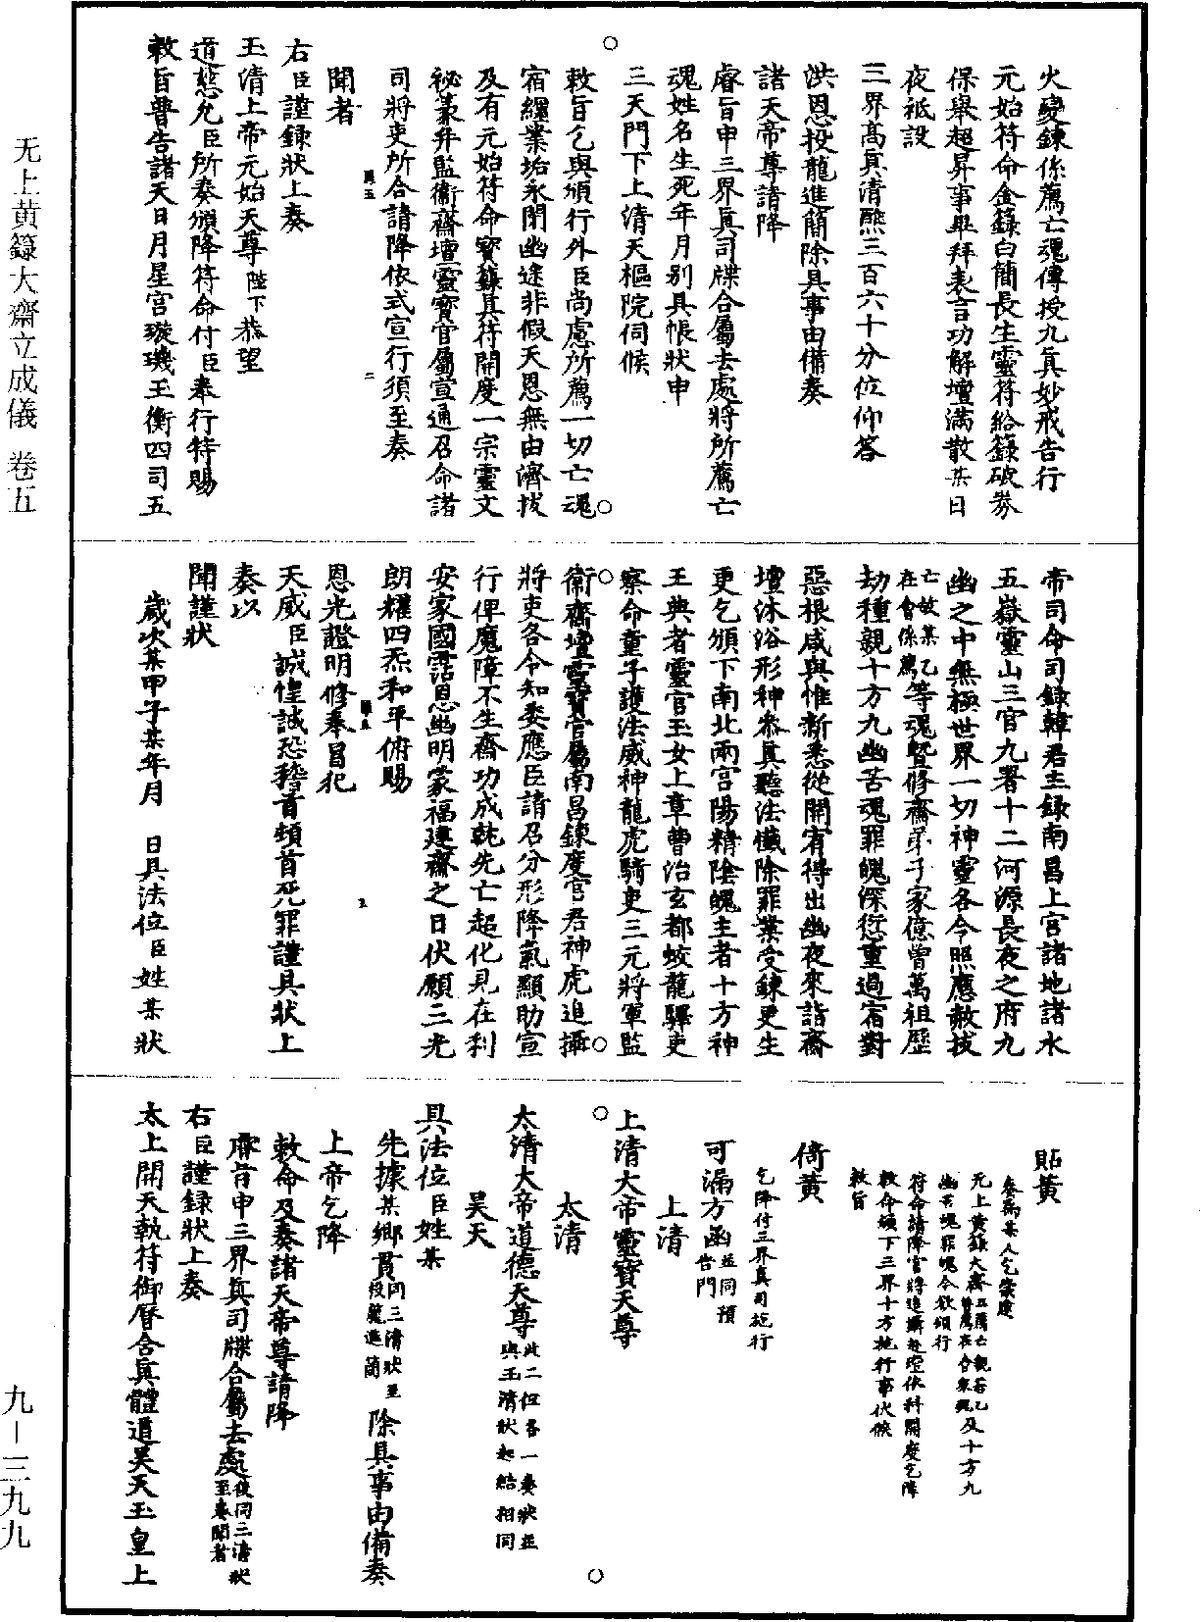 火變鍊係薦亡魂傳授九眞妙戒告行
元始符命金籙白簡長生靈符給籙破券
保舉超昇事畢拜表言功解壇滿散某日
夜祗設
三界高真清醮三百六十分位仰答
洪恩投龍進簡除具事由備奏
諸天帝尊請降
睿旨申三界眞司牒合屬去處將所薦亡
魂姓名生死年月别具悵狀申
三天門下上清天樞院伺候
敕旨乞與頒行外臣尚慮所薦一切亡魂
宿纏業垢永閉幽途非假天恩無由濟拔
及有元始符命寶籙眞符開度一宗靈文
祕篆并監衛齋壇靈寶官屬宣通召命諸
司將吏所合請降依式宣行須至奏
聞者
右臣謹錄狀上奏
玉清上帝元始天尊陛下恭望
道慈允臣所奏頒降符命付臣奉行特賜
敕旨普告諸天日月星宫璇璣玉衡四司五
帝司命司錄韓君主錄南昌上宫諸地諸水
五嶽靈山三官九署十二河源長夜之府九
幽之中無極世界一切神靈各令照應赦拔
亡故某乙
在會係薦等魂暨修齋弟子家億曾萬祖歷
劫種親十方九幽苦魂罪魄深愆重過宿對
惡根咸與惟新悉從開宥得出幽夜來詣齋
壇沐浴形神朶眞聽法懺除罪業受鍊更生
更乞頒下南北兩宫陽精陰魄主者十方神
王典者靈官玉女上章曹治玄都蛟龍驛吏
察命童子護法威神龍虎騎吏三元將軍監
衛齋壇靈寶官屬南昌鍊度官君神虎追攝
將吏各令知委應臣請召分形降氣顯助宣
行俾魔障不生齋功成就先亡超化見在利
安家國霑恩幽明蒙福建齋之日伏願三光
朗耀四炁和平俯賜
恩光證明修奉冒犯
天威臣誠惶誠恐稽首頓首死罪謹具狀上
奏以
聞謹狀
歲次某甲子某年月　日具法位臣姓某狀
貼黃
奏爲某人乞崇建
无上黄籙大齋
及十方九
幽苦魂罪魄今欲頒行
符命請降官將追攝赴壇依科開度乞降
敕命頒下三界十方施行事伏候
敕旨
倚黃
乞降付三界真司施行
可漏方函並同預
告門
上清
上清大帝靈寶天尊
太清
太清大帝道德天尊此二位各一奏狀並
與玉清狀起結相同
昊天
具法位臣姓某
先據某鄉貫同三清狀至
投龍進簡除具事由備奏
上帝乞降
敕命及奏諸天帝尊請降
睿旨申三界眞司牒合屬去處後同三清狀
至奏聞者
右臣謹錄狀上奏
太上開天執符御曆含眞體道昊天玉皇上
无上黄籙大齋立成儀 卷五
九－三九九